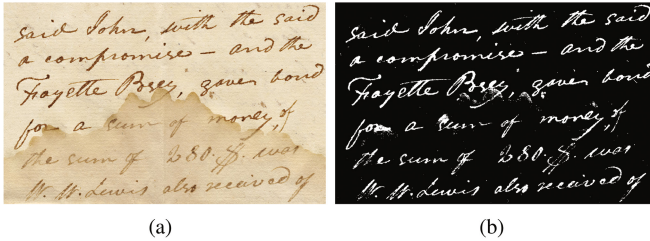 said John, with the said
a compromise – and the
Fayette Posey, gave bond
for a sum of money, of
the sum of 280. $. was
W. W. Lewis also received of
said John, with the said
a compromise – and the
Fayette Posey, gave bond
for a sum of money, of
the sum of 280. $. was
W. W. Lewis also received of
(a)
(b)